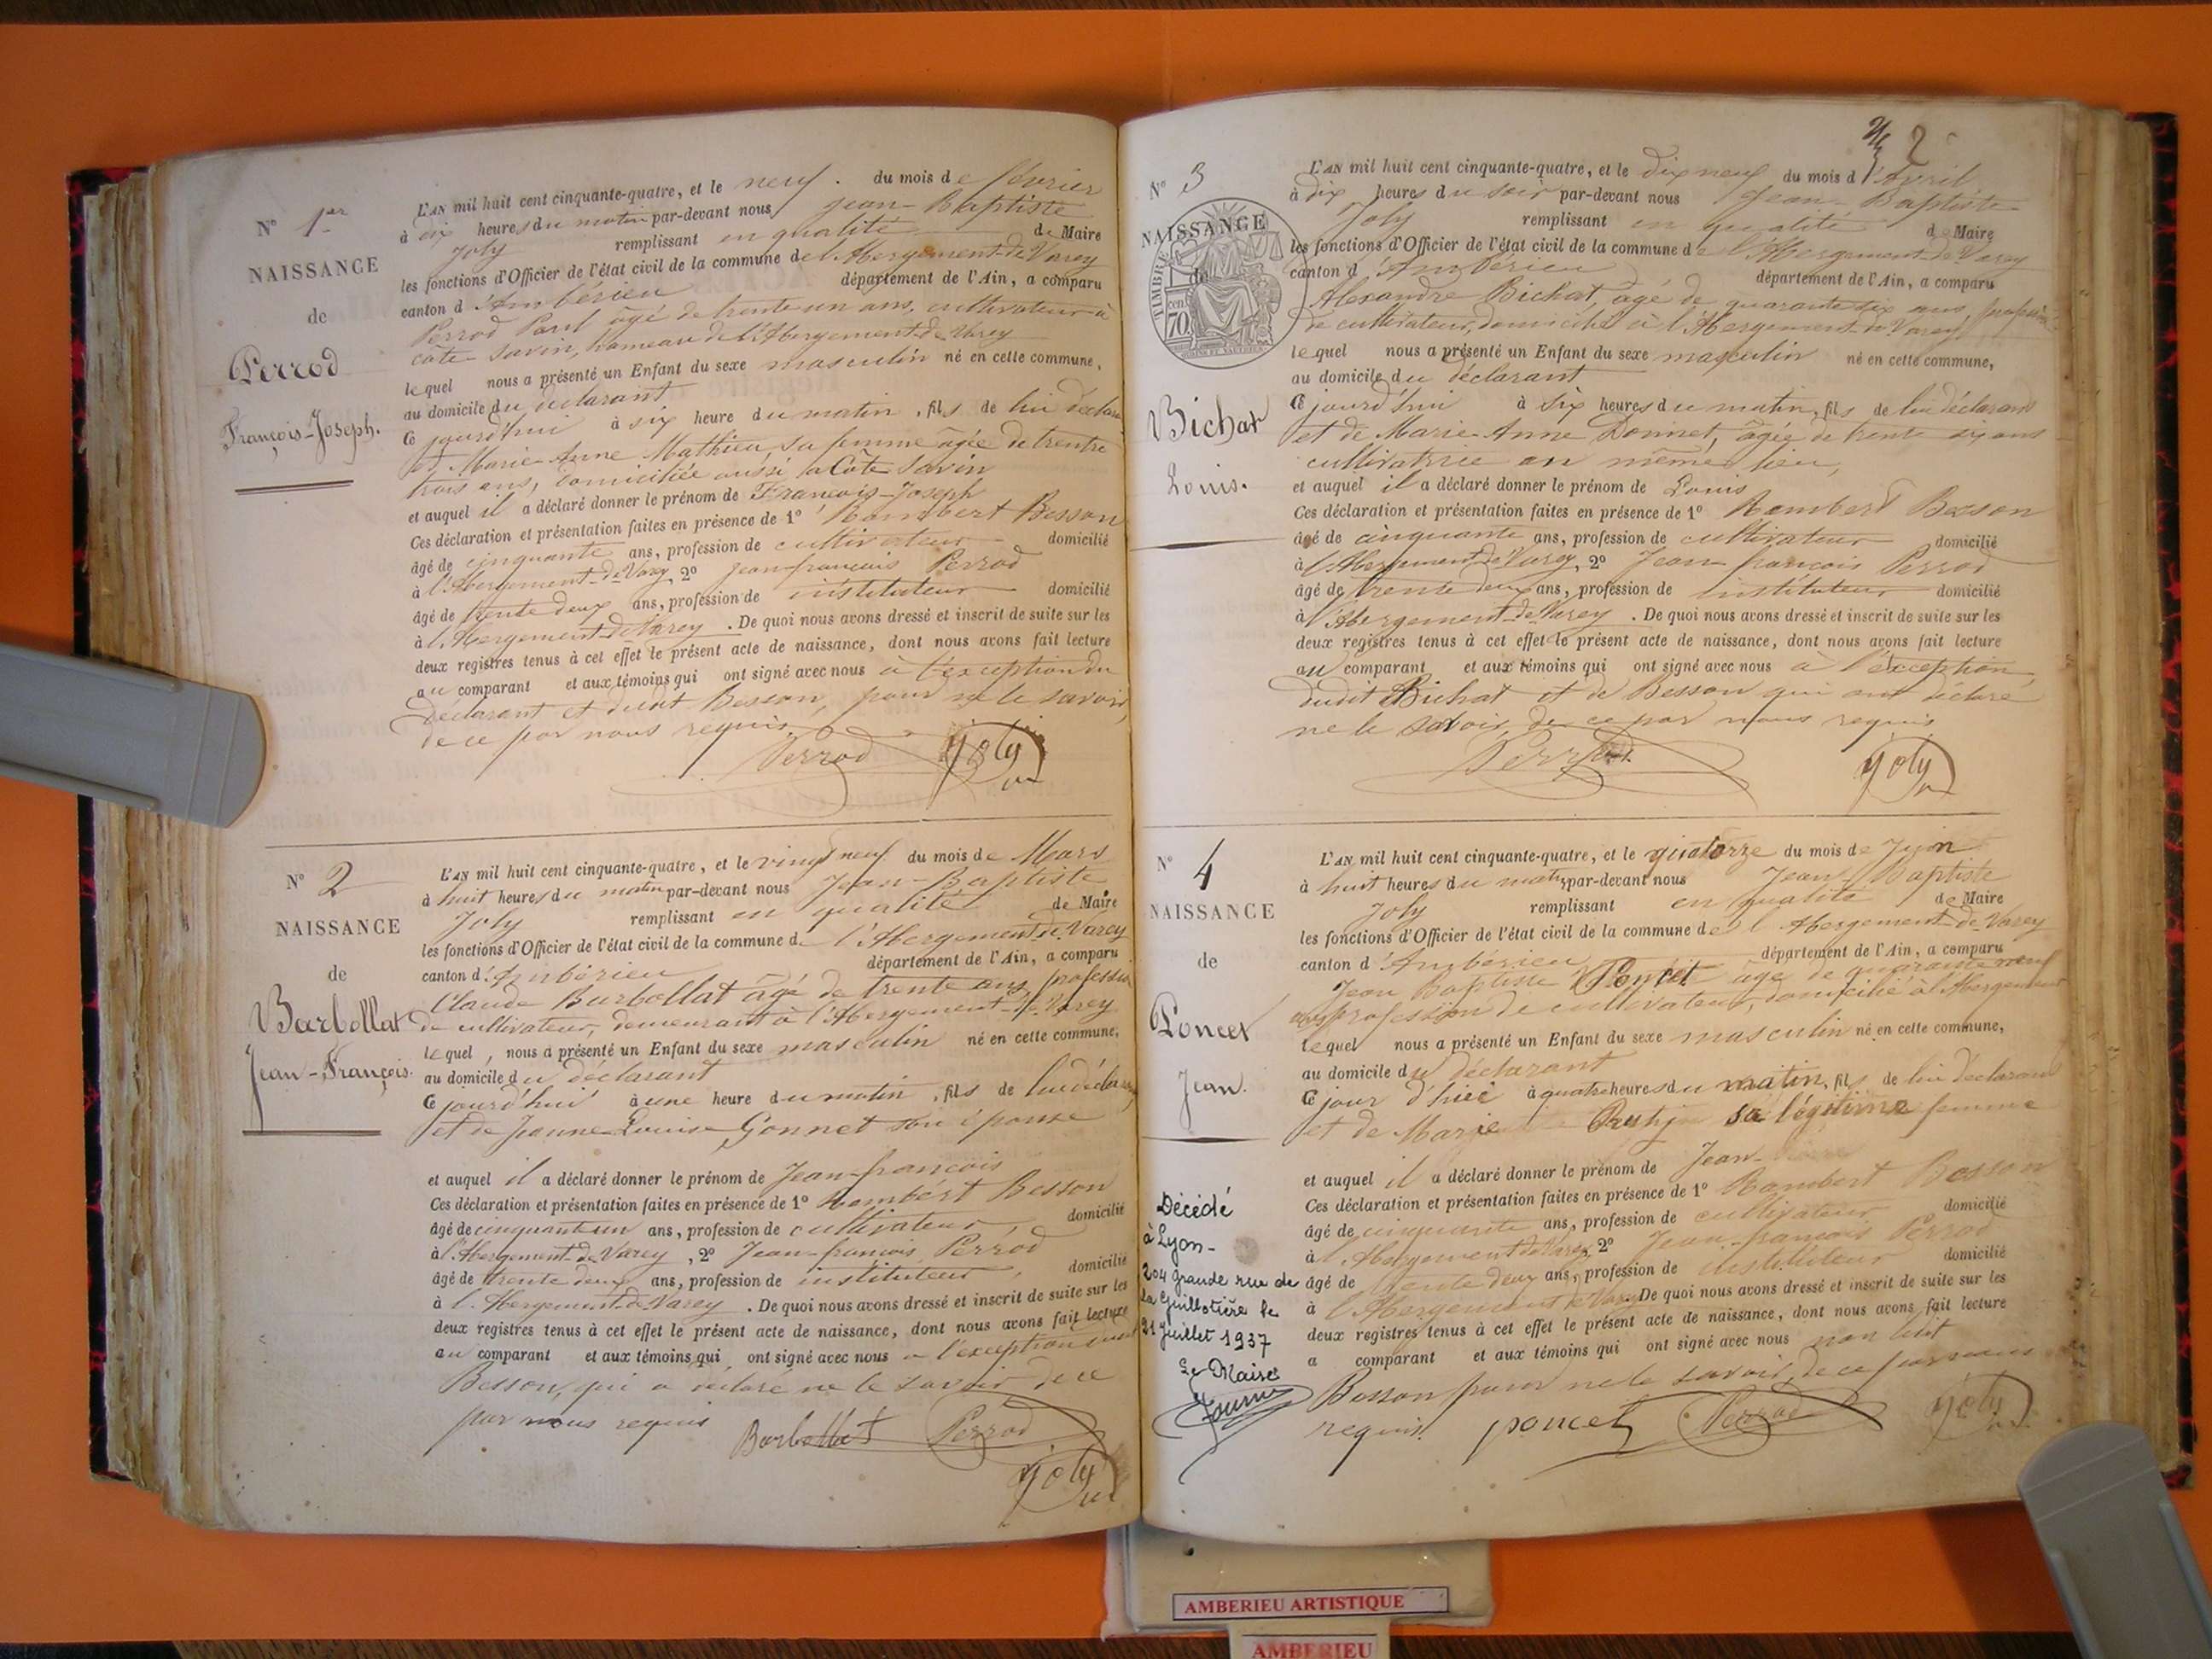 N° 1er
NAISSANCE
de
Perrod
François-Joseph.
L'AN mil huit cent cinquante-quatre, et le neuf du mois de février
à dix heures du matin par-devant nous Jean-Baptiste
Joly remplissant en qualité de Maire
les fonctions d'Officier de l'état civil de la commune de l'Abergement-de-Varey
canton d'Ambérieu département de l'Ain, a comparu
Perrod Paul âgé de trente un ans, cultivateur à
côte Savin, hameau de l'Abergement-de-Varey
lequel nous a présenté un Enfant du sexe masculin né en cette commune,
au domicile du déclarant
Ce jourd'hui à six heure du matin, fils de lui déclarant
et Marie Anne Mathieu sa femme âgée de trentre
trois ans, domiciliée aussi à Côte Savin
et auquel il a déclaré donner le prénom de François-Joseph
Ces déclaration et présentation faites en présence de 1° Rambert Besson
âgé de cinquante ans, profession de cultivateur domicilié
à l'Abergement-de-Varey, 2° Jean-françois Perrod
âgé de trente deux ans, profession de instituteur domicilié
à l'Abergement-de-Varey. De quoi nous avons dressé et inscrit de suite sur les
deux registres tenus à cet effet le présent acte de naissance, dont nous avons fait lecture
au comparant et aux témoins qui ont signé avec nous à l'exception du
déclarant et dudit Besson, pour ne le savoir,
de ce par nous requis
Perrod Joly
N° 2
NAISSANCE
de
Barbollat
Jean-François.
L'AN mil huit cent cinquante-quatre, et le vingt neuf du mois de Mars
à huit heures du matin par-devant nous Jean-Baptiste
Joly remplissant en qualité de Maire
les fonctions d'Officier de l'état civil de la commune de l'Abergement-de-Varey
canton d'Ambérieu département de l'Ain, a comparu
Claude Barbollat âgé de trente ans, profession
de cultivateur, demeurant à l'Abergement-de-Varey
lequel, nous a présenté un Enfant du sexe masculin né en cette commune,
au domicile du déclarant
Ce jourd'hui à une heure du matin, fils de lui déclarant
et de Jeanne Louise Gonnet son épouse
et auquel il a déclaré donner le prénom de Jean-françois
Ces déclaration et présentation faites en présence de 1° Rambert Besson
âgé de cinquant un ans, profession de cultivateur, domicilié
à l'Abergement-de-Varey, 2° Jean-françois Perrod
âgé de trente deux ans, profession de instituteur, domicilié
à l'Abergement-de-Varey. De quoi nous avons dressé et inscrit de suite sur les
deux registres tenus à cet effet le présent acte de naissance, dont nous avons fait lecture
au comparant et aux témoins qui ont signé avec nous à l'exception
Besson, qui a déclaré ne le savoir de ce
par nous requis
Barbollat Perrod
Joly
2
N° 3
NAISSANCE
de
70
Bichat
Louis.
L'AN mil huit cent cinquante-quatre, et le dix neuf du mois d'Avril
à dix heures du soir par-devant nous Jean-Baptiste
Joly remplissant en qualité de Maire
les fonctions d'Officier de l'état civil de la commune de l'Abergement-de-Varey
canton d'Ambérieu département de l'Ain, a comparu
Alexandre Bichat, âgé de quarante six ans, profession
de cultivateur, domicilié à l'Abergement de Varey
lequel nous a présenté un Enfant du sexe masculin né en cette commune,
au domicile du déclarant
Ce jourd'hui à six heures du matin, fils de lui déclarant
et de Marie-Anne Donnet, âgée de trente six ans
cultivatrice au même lieu,
et auquel il a déclaré donner le prénom de Louis
Ces déclaration et présentation faites en présence de 1° Rambert Besson
âgé de cinquante ans, profession de cultivateur domicilié
à l'Abergement-de-Varey, 2° Jean-françois Perrod
âgé de trente deux ans, profession de instituteur domicilié
à l'Abergement-de-Varey. De quoi nous avons dressé et inscrit de suite sur les
deux registres tenus à cet effet le présent acte de naissance, dont nous avons fait lecture
au comparant et aux témoins qui ont signé avec nous à l'exception
dudit Bichat et de Besson qui ont déclaré
ne le savoir, de ce par nous requis
Perrod Joly
N° 4
NAISSANCE
de
Poncet
Jean.
L'AN mil huit cent cinquante-quatre, et le quatorze du mois de Juin
à huit heures du matin par-devant nous Jean Baptiste
Joly remplissant en qualité de Maire
les fonctions d'Officier de l'état civil de la commune de l'Abergement-de-Varey
canton d'Ambérieu département de l'Ain, a comparu
Jean Baptiste Poncet âgé de quarante neuf
ans profession de cultivateur, domicilié à l'Abergement
lequel nous a présenté un Enfant du sexe masculin né en cette commune,
au domicile du déclarant
Ce jour d'hier à quatre heures du matin, fils de lui déclarant
et de Marie sa légitime femme
et auquel il a déclaré donner le prénom de Jean
Ces déclaration et présentation faites en présence de 1° Rambert Besson
âgé de cinquante ans, profession de cultivateur domicilié
à l'Abergement de Varey, 2° Jean-françois Perrod
âgé de trente deux ans, profession de instituteur domicilié
à l'Abergement de Varey De quoi nous avons dressé et inscrit de suite sur les
deux registres tenus à cet effet le présent acte de naissance, dont nous avons fait lecture
a comparant et aux témoins qui ont signé avec nous non ledit
Besson pour ne le savoir, de ce par nous
requis. poncet Perrod Joly
Décédé
à Lyon-
204 grande rue de
la Guillotière le
21 Juillet 1937
Le Maire
AMBERIEU ARTISTIQUE
AMBERIEU